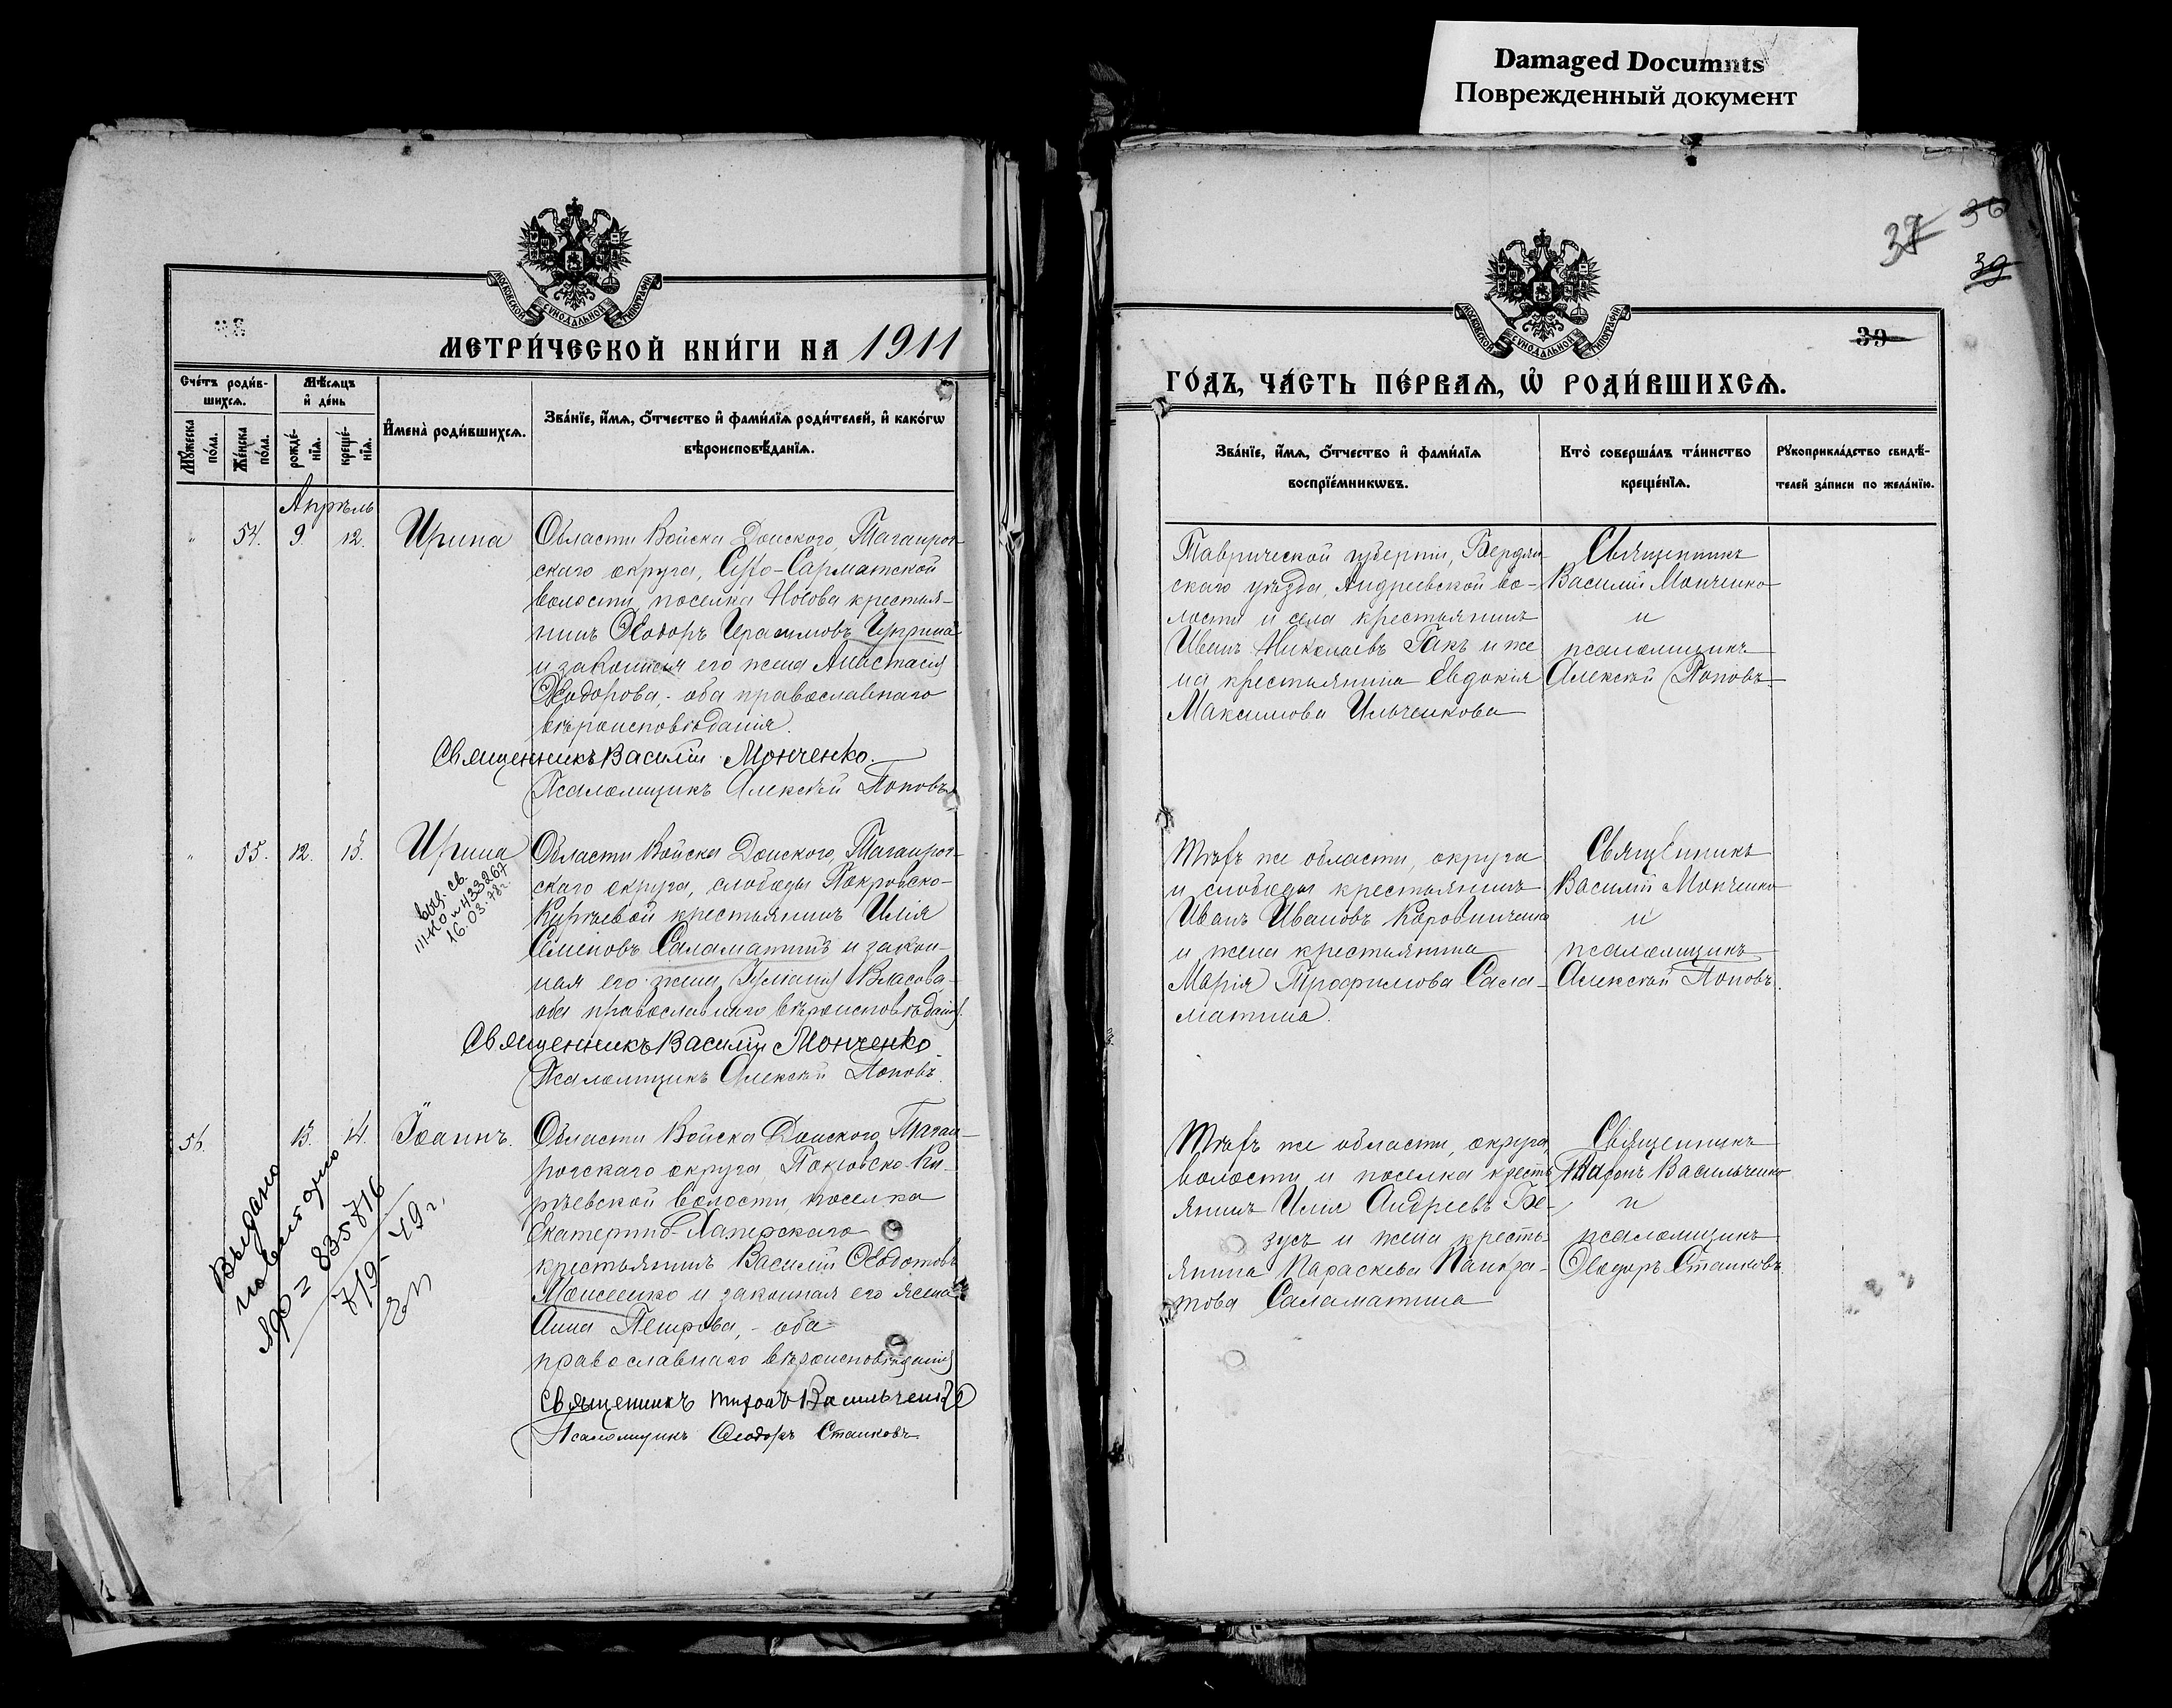 Damaged Documnts
Поврежденный документ
МОСКОВСКОЙ СѴНОДАЛЬНОЙ ТИПОГРАФІИ
МЕТРИ́ЧЕСКОЙ КНИ́ГИ НА 1911
Сче́тъ роди́в-
шихсѧ.
Мѣ́сѧцъ
и҆ де́нь
И҆мена̀ роди́вшихсѧ.
Зва́нїе, и҆́мѧ, ѻ҆́тчество и҆ фами́лїѧ роди́телей, и҆ како́гѡ
вѣроисповѣ́данїѧ.
Мꙋ́жеска
по́ла.
Же́нска
по́ла.
рожде́-
нїѧ.
креще́-
нїѧ.
Апрѣль
„ 54. 9. 12. Ирина
Области Войска Донского, Таганрог-
скаго округа,
волости, поселка Носова крестья-
нинъ Ѳеодоръ Герасимовъ
и законная его жена Анастасія
Ѳеодорова, - оба православнаго
вѣроисповѣданія.
Священникъ Василій Монченко.
Псаломщикъ Алексѣй Поповъ
„ 55. 12. 13. Ирина
выд. св.
16.03.78г.
Области Войска Донского, Таганрог-
скаго округа, слободы Покровско-
Кирѣевой крестьянинъ Илія
Семеновъ Саламатинъ и закон-
ная его жена Власова -
оба православнаго вѣроисповѣданія.
Священникъ Василій Монченко
Псаломщикъ Алексѣй Поповъ.
56. 13. 14. Іоаннъ.
Выдано
повторно
835716
7/9-49г.
Области Войска Донского, Таган-
рогскаго округа, Покровско-Ки-
рѣевской волости, поселка
крестьянинъ Василій Ѳеодотовъ
Моисеенко и законная его жена
Анна Петрова, - оба
православнаго вѣроисповѣданія
Священникъ Тихонъ Васильченко
Псаломщикъ Ѳеодоръ Станковъ
37 36
39
39
МОСКОВСКОЙ СѴНОДАЛЬНОЙ ТИПОГРАФІИ
ГО́ДЪ, ЧА́СТЬ ПЕ́РВАѦ, Ѡ҆ РОДИ́ВШИХСѦ.
Зва́нїе, и҆́мѧ, ѻ҆́тчество и҆ фами́лїѧ
воспрїе́мникѡвъ.
Кто̀ соверша́лъ та́инство
креще́нїѧ.
Рꙋкоприкла́дство свидѣ́-
телей за́писи по жела́нїю.
Таврической губерніи, Бердян-
скаго уѣзда, Андреевской во-
лости и села крестьянинъ
Иванъ Николаевъ Гакъ и же
на крестьянина Евдокія
Максимова Ильченкова
Священникъ
Василій Монченко
и
псаломщикъ
Алексѣй Поповъ.
Тѣхъ же области, округа
и слободы крестьянинъ
Иванъ Ивановъ
и жена крестьянина
Марія Трофимова Сала-
матина.
Священникъ
Василій Монченко
и
псаломщикъ
Алексѣй Поповъ.
Тѣхъ же области, округа,
волости и поселка кресть-
янинъ Илія Андреевъ Бе-
зусъ и жена кресть-
янина Параскева Панкра-
това Саламатина
Священникъ
Тихонъ Васильченко
и
псаломщикъ
Ѳеодоръ Станковъ.